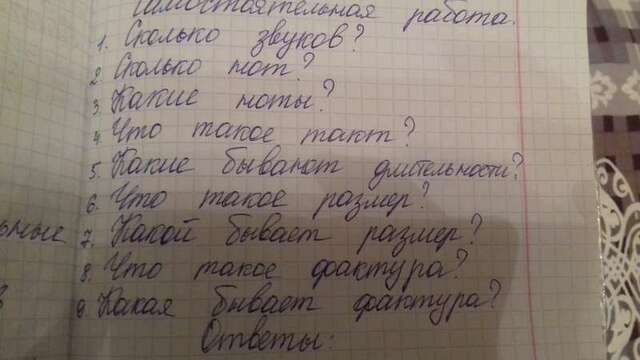 Самостоятельная работа.
1. Сколько звуков?
2. Сколько нот?
3. Какие ноты?
4. Что такое такт?
5. Какие бывают длительности?
6. Что такое размер?
7. Какой бывает размер?
8. Что такое фактура?
9. Какая бывает фактура?
Ответы: